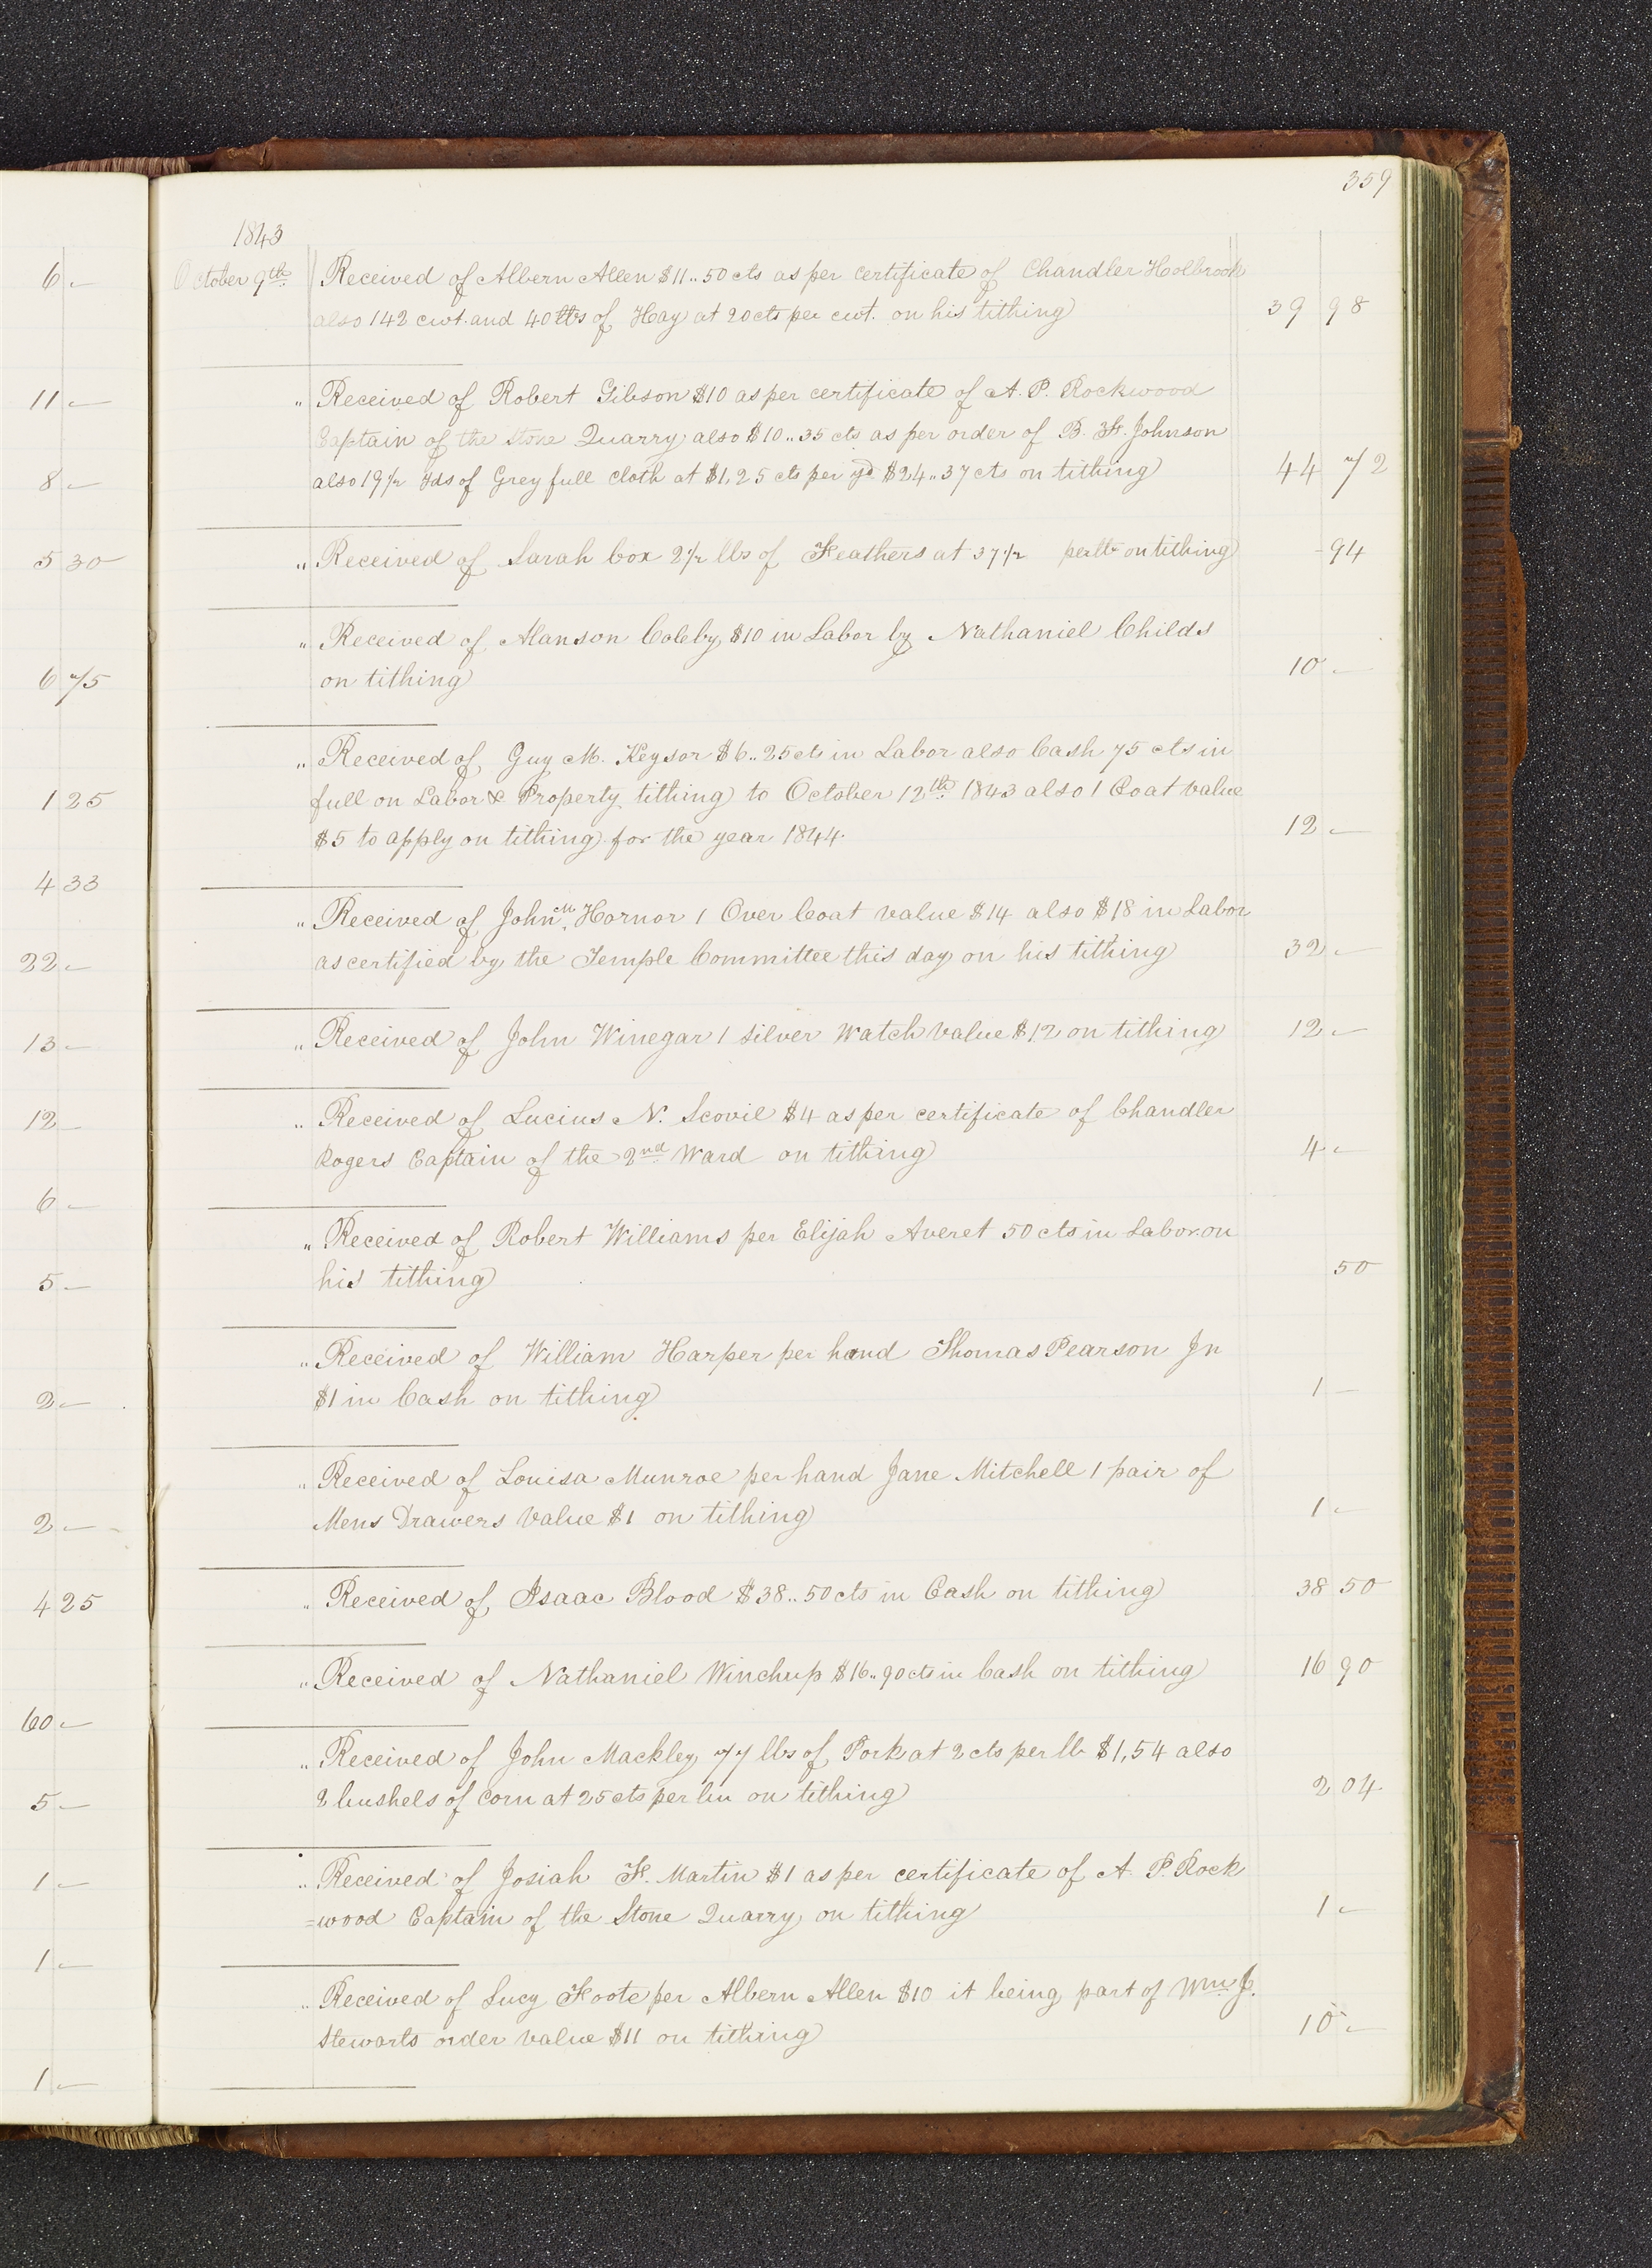 359
1843
October 9th Received of Albern Allen $11..50cts as per certificate of Chandler Holbrook
also 142 cwt. and 40 lbs of Hay at 20cts per cwt. on his tithing 39 98
" Received of Robert Gibson $10 as per certificate of A. P. Rockwood
Captain of the Stone Quarry also $10..35 cts as per order of B. F. Johnson
also 19½ Yds of Grey full cloth at $1,25 cts per yd $24..37 cts on tithing 44 72
" Received of Sarah Cox 2½ lbs of Feathers at 37½ per lb on tithing - 94
" Received of Alanson Coleby $10 in Labor by Nathaniel Childs
on tithing 10 -
" Received of Guy M. Keysor $6..25cts in Labor also Cash 75 cts in
full on Labor & Property tithing to October 12th 1843 also 1 Coat value
$5 to apply on tithing for the year 1844. 12 -
" Received of John M. Hornor 1 Over Coat value $14 also $18 in Labor
as certified by the Temple Committee this day on his tithing 32 -
" Received of John Winegar 1 Silver Watch value $12 on tithing 12 -
" Received of Lucius N. Scovil $4 as per certificate of Chandler
Rogers Captain of the 2nd Ward on tithing 4 -
" Received of Robert Williams per Elijah Averet 50 cts in Labor on
his tithing 50
" Received of William Harper per hand Thomas Pearson Jn
$1 in Cash on tithing 1 -
" Received of Louisa Munroe per hand Jane Mitchell 1 pair of
Mens Drawers value $1 on tithing 1 -
" Received of Isaac Blood $38..50cts in Cash on tithing 38 50
" Received of Nathaniel Winchup $16..90cts in Cash on tithing 16 90
" Received of John Mackley 77 lbs of Pork at 2 cts per lb $1,54 also
2 bushels of Corn at 25 cts per bu on tithing 2 04
" Received of Josiah F. Martin $1 as per certificate of A. P. Rock
=wood Captain of the Stone Quarry on tithing 1 -
" Received of Lucy Foote per Albern Allen $10 it being part of Wm J.
Stewarts order value $11 on tithing 10 -
6 -
11 -
8 -
5 30
6 75
1 25
4 33
22 -
13 -
12 -
6 -
5 -
2 -
2 -
4 25
60 -
5 -
1 -
1 -
1 -